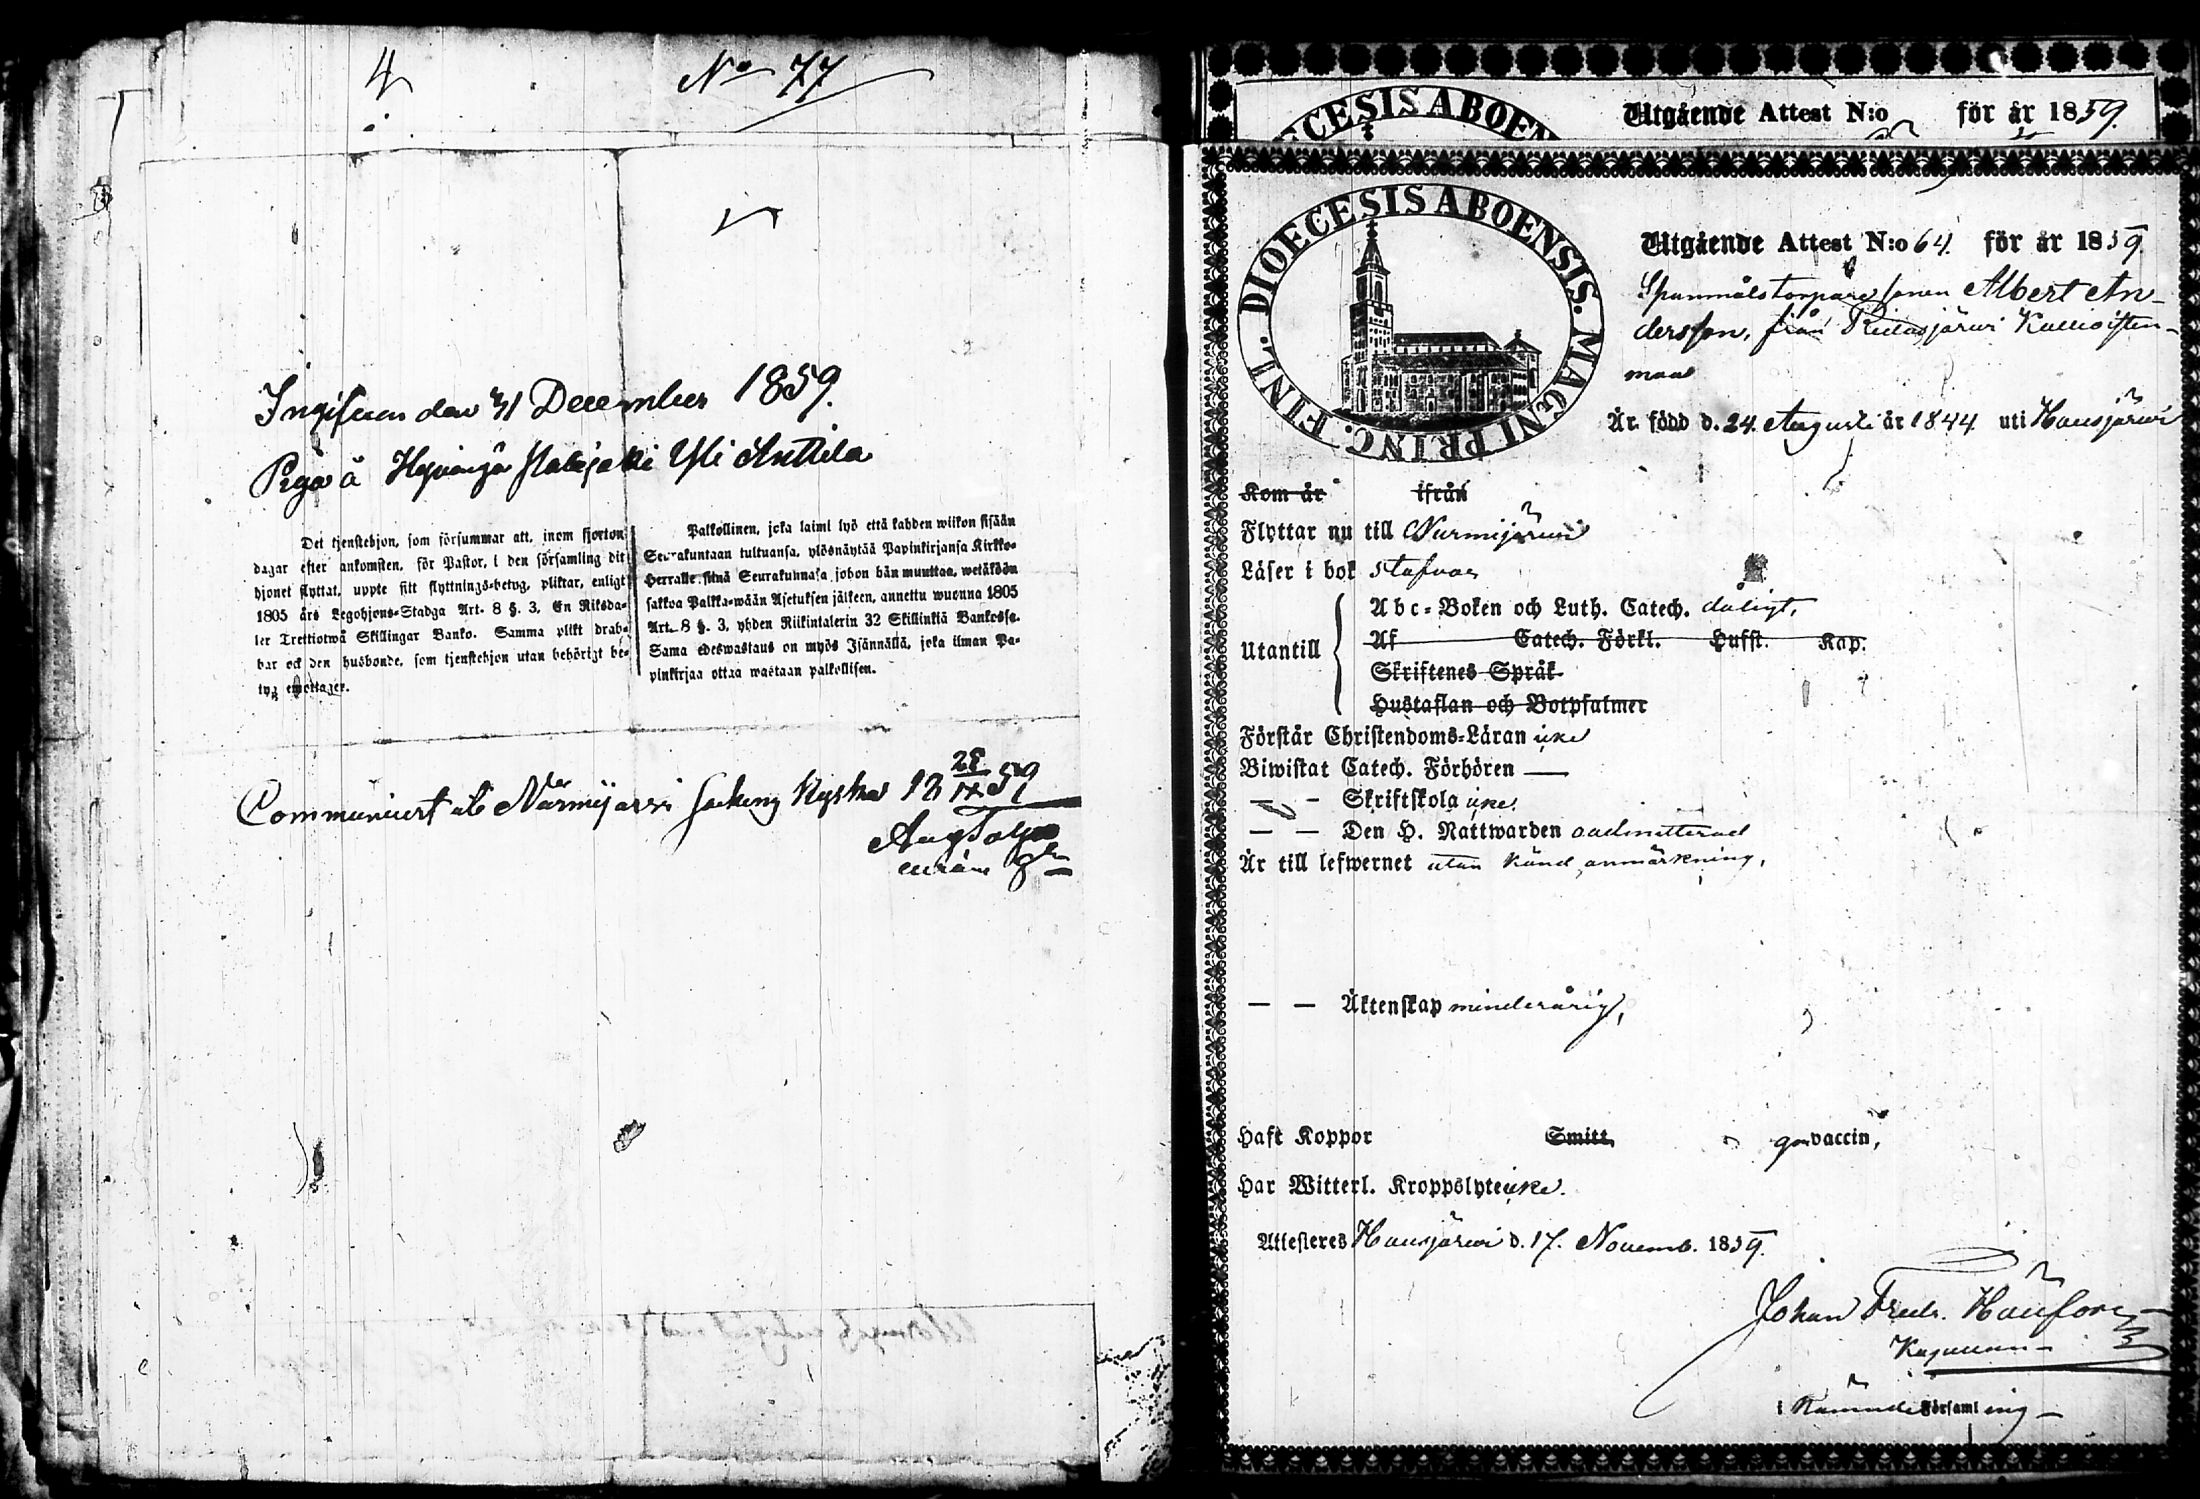 4
No 77
den 31 December 1859.
å Yli Anttila
Det tjenstehjon, som försummar att, inom fjorton
dagar efter ankomsten, för Pastor, i den församling dit
hjonet flyttat, uppte sitt flyttnings-betyg, pliktar, enligt
1805 års Legohjons-Stadga Art. 8 §. 3. En Riksda-
ler Trettiotwå Skillingar Banko. Samma plikt drab-
bar ock den husbonde, som tjenstehjon utan behörigt be-
tyg emottager.
Palkollinen, joka laimi lyö että kahden wiikon sisään
Seurakuntaan tultuansa, ylösnäytää Papinkirjansa Kirkko-
Herralle siinä Seurakunnasa johon hän muuttaa, wetäköön
sakkoa Palkka-wään Asetuksen jälkeen, annettu wuonna 1805
Art. 8 §. 3, yhden Riikintalerin 32 Skillinkiä Bankossa.
Sama edeswastaus on myös Isännällä, joka ilman Pa-
pinkirjaa ottaa wastaan palkollisen.
18 59
DIOECESIS ABOEN
Utgående Attest N:o för år 1859.
DIOECESIS ABOENSIS. MAGNI PRINC. FINL.
Utgående Attest N:o 64. för år 1859
Spanmåls torpare sonen Albert An-
dersson, från
maa
Är född d. 24. Augusti år 1844 uti Hausjärvi
Kom år ifrån
Flyttar nu till Nurmijärvi
Läser i bok stafvar
Abc-Boken och Luth. Catech. dåligt,
Utantill
Af Catech. Förkl. Hufst. Kap.
Skriftenes Språk
Hustaflan och Botpsalmer
Förstår Christendoms-Läran icke
Biwistat Catech. Förhören —
— - Skriftskola icke.
— — Den H. Nattwarden oadmitterad
Är till lefwernet utan känd anmärkning,
— — Äktenskap minderårig,
Haft Koppor Smitt, vaccin,
Har Witterl. Kroppslyte icke.
Attesteres Hausjärvi d. 17. Novemb. 1859.
Johan Fredr.
i Församling